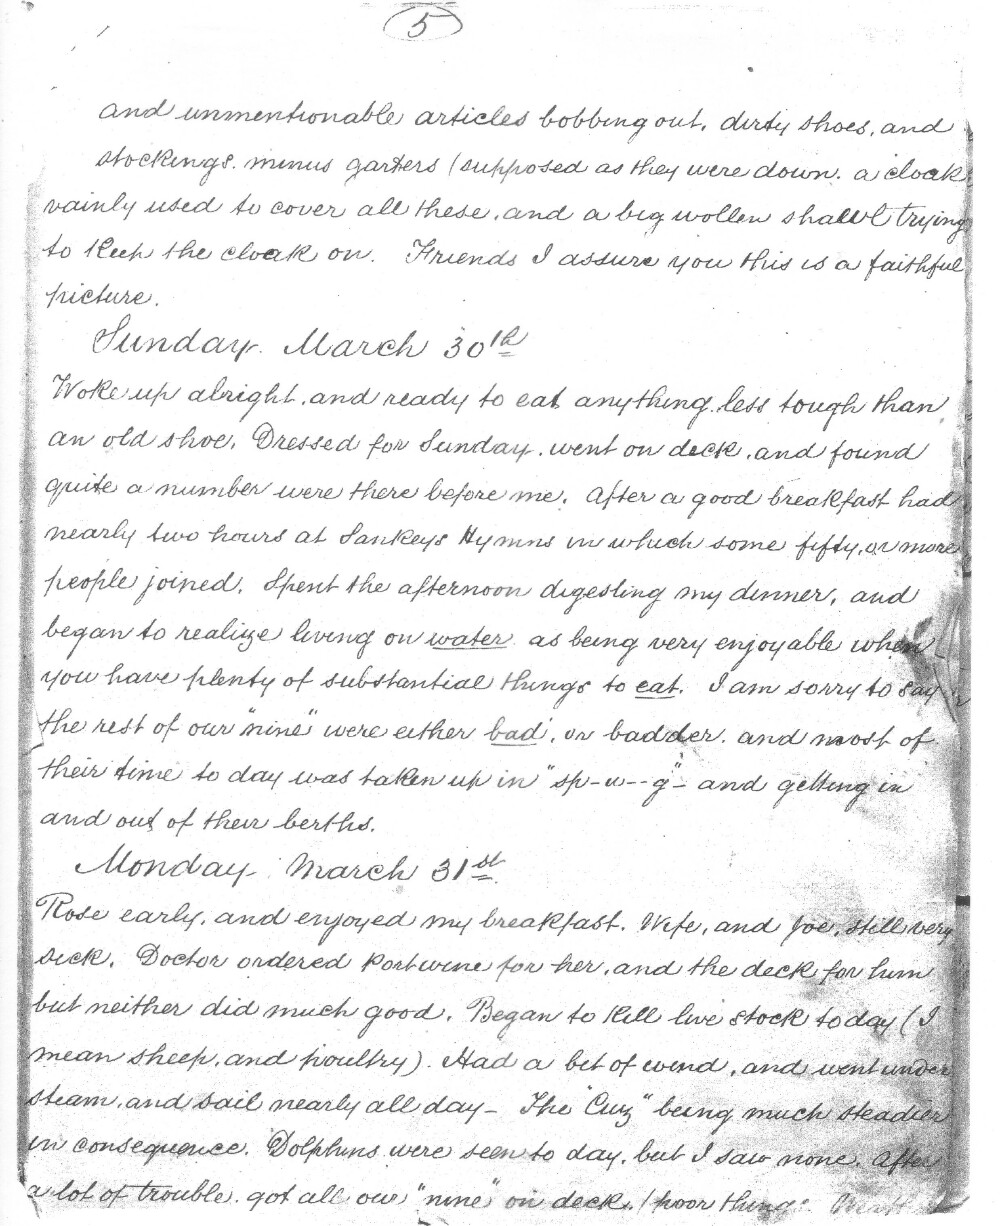 5
and unmentionable articles bobbing out, dirty shoes, and
stockings, minus garters (supposed as they were down. a cloak
vainly used to cover all these, and a big wollen shawl trying
to keep the cloak on. Friends I assure you this is a faithful
picture.
Sunday. March 30th
Woke up alright, and ready to eat anything less tough than
an old shoe. Dressed for Sunday, went on deck, and found
quite a number were there before me. After a good breakfast had
nearly two hours at Sankeys Hymns in which some fifty, or more
people joined. Spent the afternoon digesting my dinner, and
began to realize living on water as being very enjoyable when
you have plenty of substantial things to eat. I am sorry to say
the rest of our "nine" were either bad, or badder. and most of
their time to day was taken up in "sp-u--g"- and getting in
and out of their berths.
Monday March 31st
Rose early, and enjoyed my breakfast. Wife, and Joe, still very
sick. Doctor ordered Portwine for her, and the deck for him
but neither did much good. Began to kill live stock today (I
mean sheep, and poultry). Had a bit of wind, and went under
steam, and sail nearly all day - The being much steadier
in consequence. Dolphins were seen to day, but I saw none. After
a lot of trouble, got all our "nine" on deck, (poor things